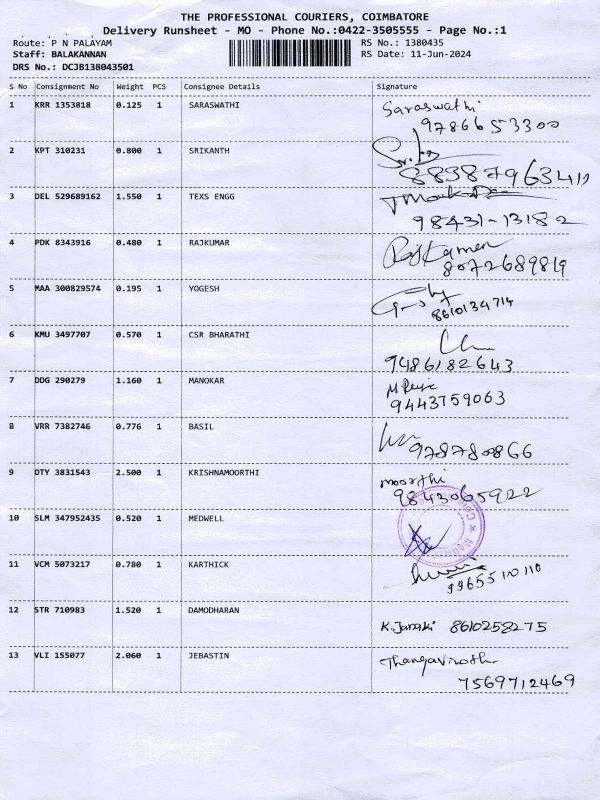 THE PROFESSIONAL COURIERS, COIMBATORE
Delivery Runsheet - MO - Phone No.:0422-3505555 - Page No.:1
Route: P N PALAYAM RS No.: 1380435
Staff: BALAKANNAN RS Date: 11-Jun-2024
DRS No.: DCJB138043501
S No Consignment No Weight PCS Consignee Details Signature
1 KRR 1353818 0.125 1 SARASWATHI Saraswathi
9786653300
2 KPT 310231 0.800 1 SRIKANTH
3 DEL 529689162 1.550 1 TEXS ENGG
98431-13182
4 PDK 8343916 0.480 1 RAJKUMAR
8072689819
5 MAA 300829574 0.195 1 YOGESH
8610134714
6 KMU 3497707 0.570 1 CSR BHARATHI
9486182643
7 DDG 290279 1.160 1 MANOKAR
9443759063
8 VRR 7382746 0.776 1 BASIL
9 OTY 3831543 2.500 1 KRISHNAMOORTHI moorthi
9843065922
10 SLM 347952435 0.520 1 MEDWELL
11 VCM 5073217 0.780 1 KARTHICK
9965510110
12 STR 710983 1.520 1 DAMODHARAN K. Janaki 8610258275
13 VLI 155077 2.060 1 JEBASTIN
7569712469